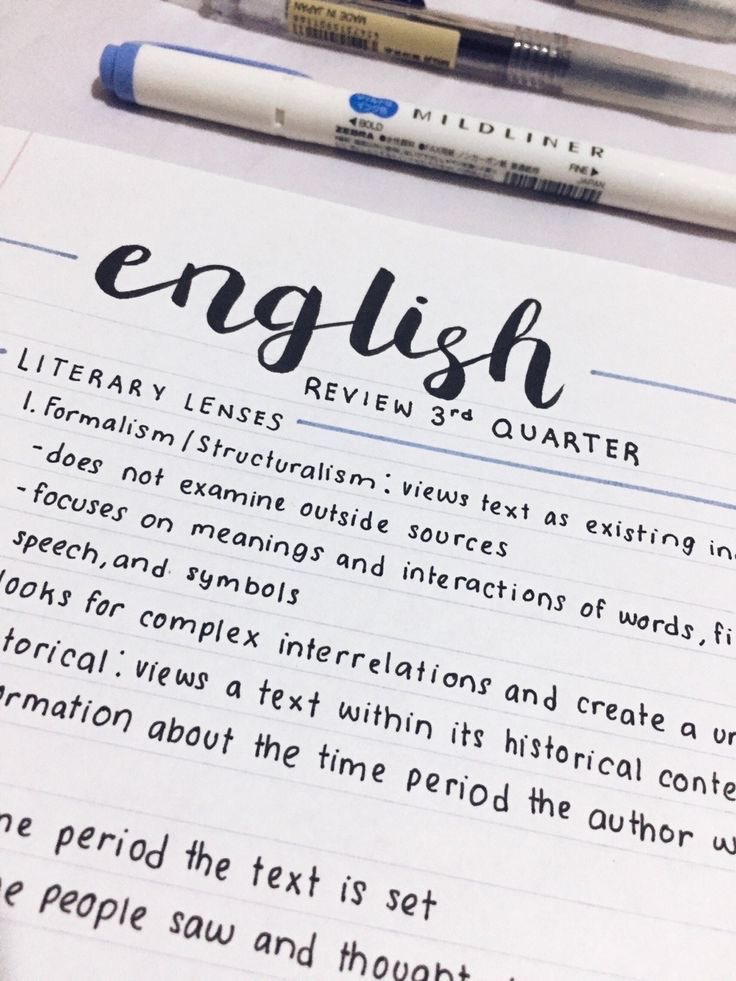 MADE IN JAPAN
MILDLINER
◀BOLD
ZEBRA
FINE▶
JAPAN
english
REVIEW 3rd QUARTER
LITERARY LENSES
1. Formalism/Structuralism: views text as existing in
-does not examine outside sources
-focuses on meanings and interactions of words, fi
speech, and symbols
looks for complex interrelations and create a un
torical: views a text within its historical conte
ormation about the time period the author w
me period the text is set
e people saw and though